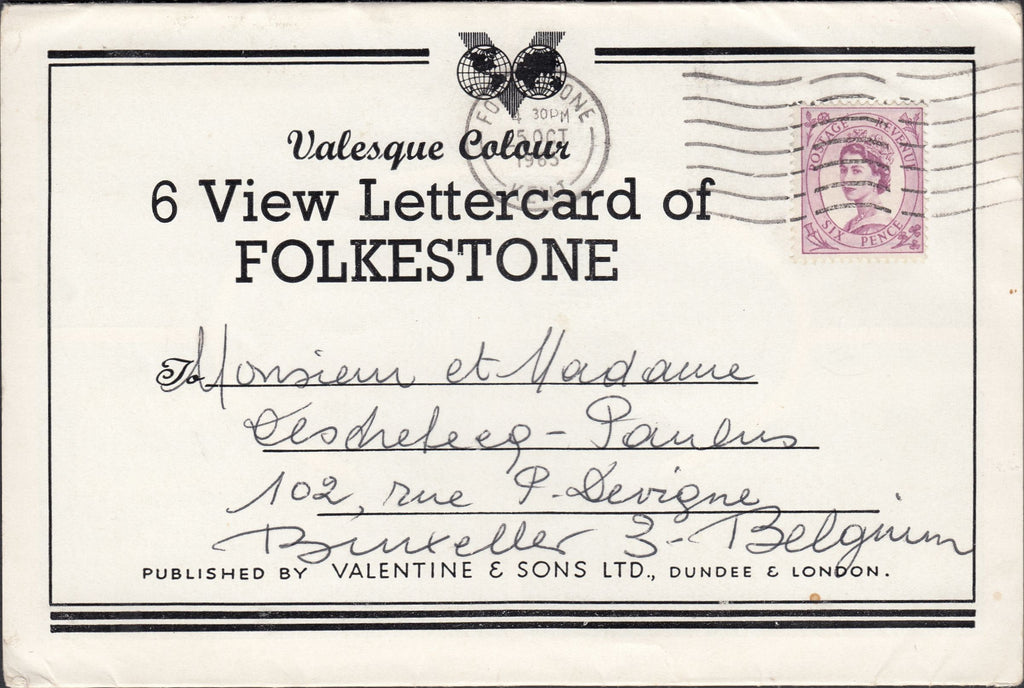 FOLKESTONE
4 30PM
5 OCT
1965
KENT
POSTAGE REVENUE
SIX PENCE
Valesque Colour
6 View Lettercard of
FOLKESTONE
To Monsieur et Madame
Paulus
102, rue P. Devigne
Bruxelles 3 - Belgium
PUBLISHED BY VALENTINE & SONS LTD., DUNDEE & LONDON.